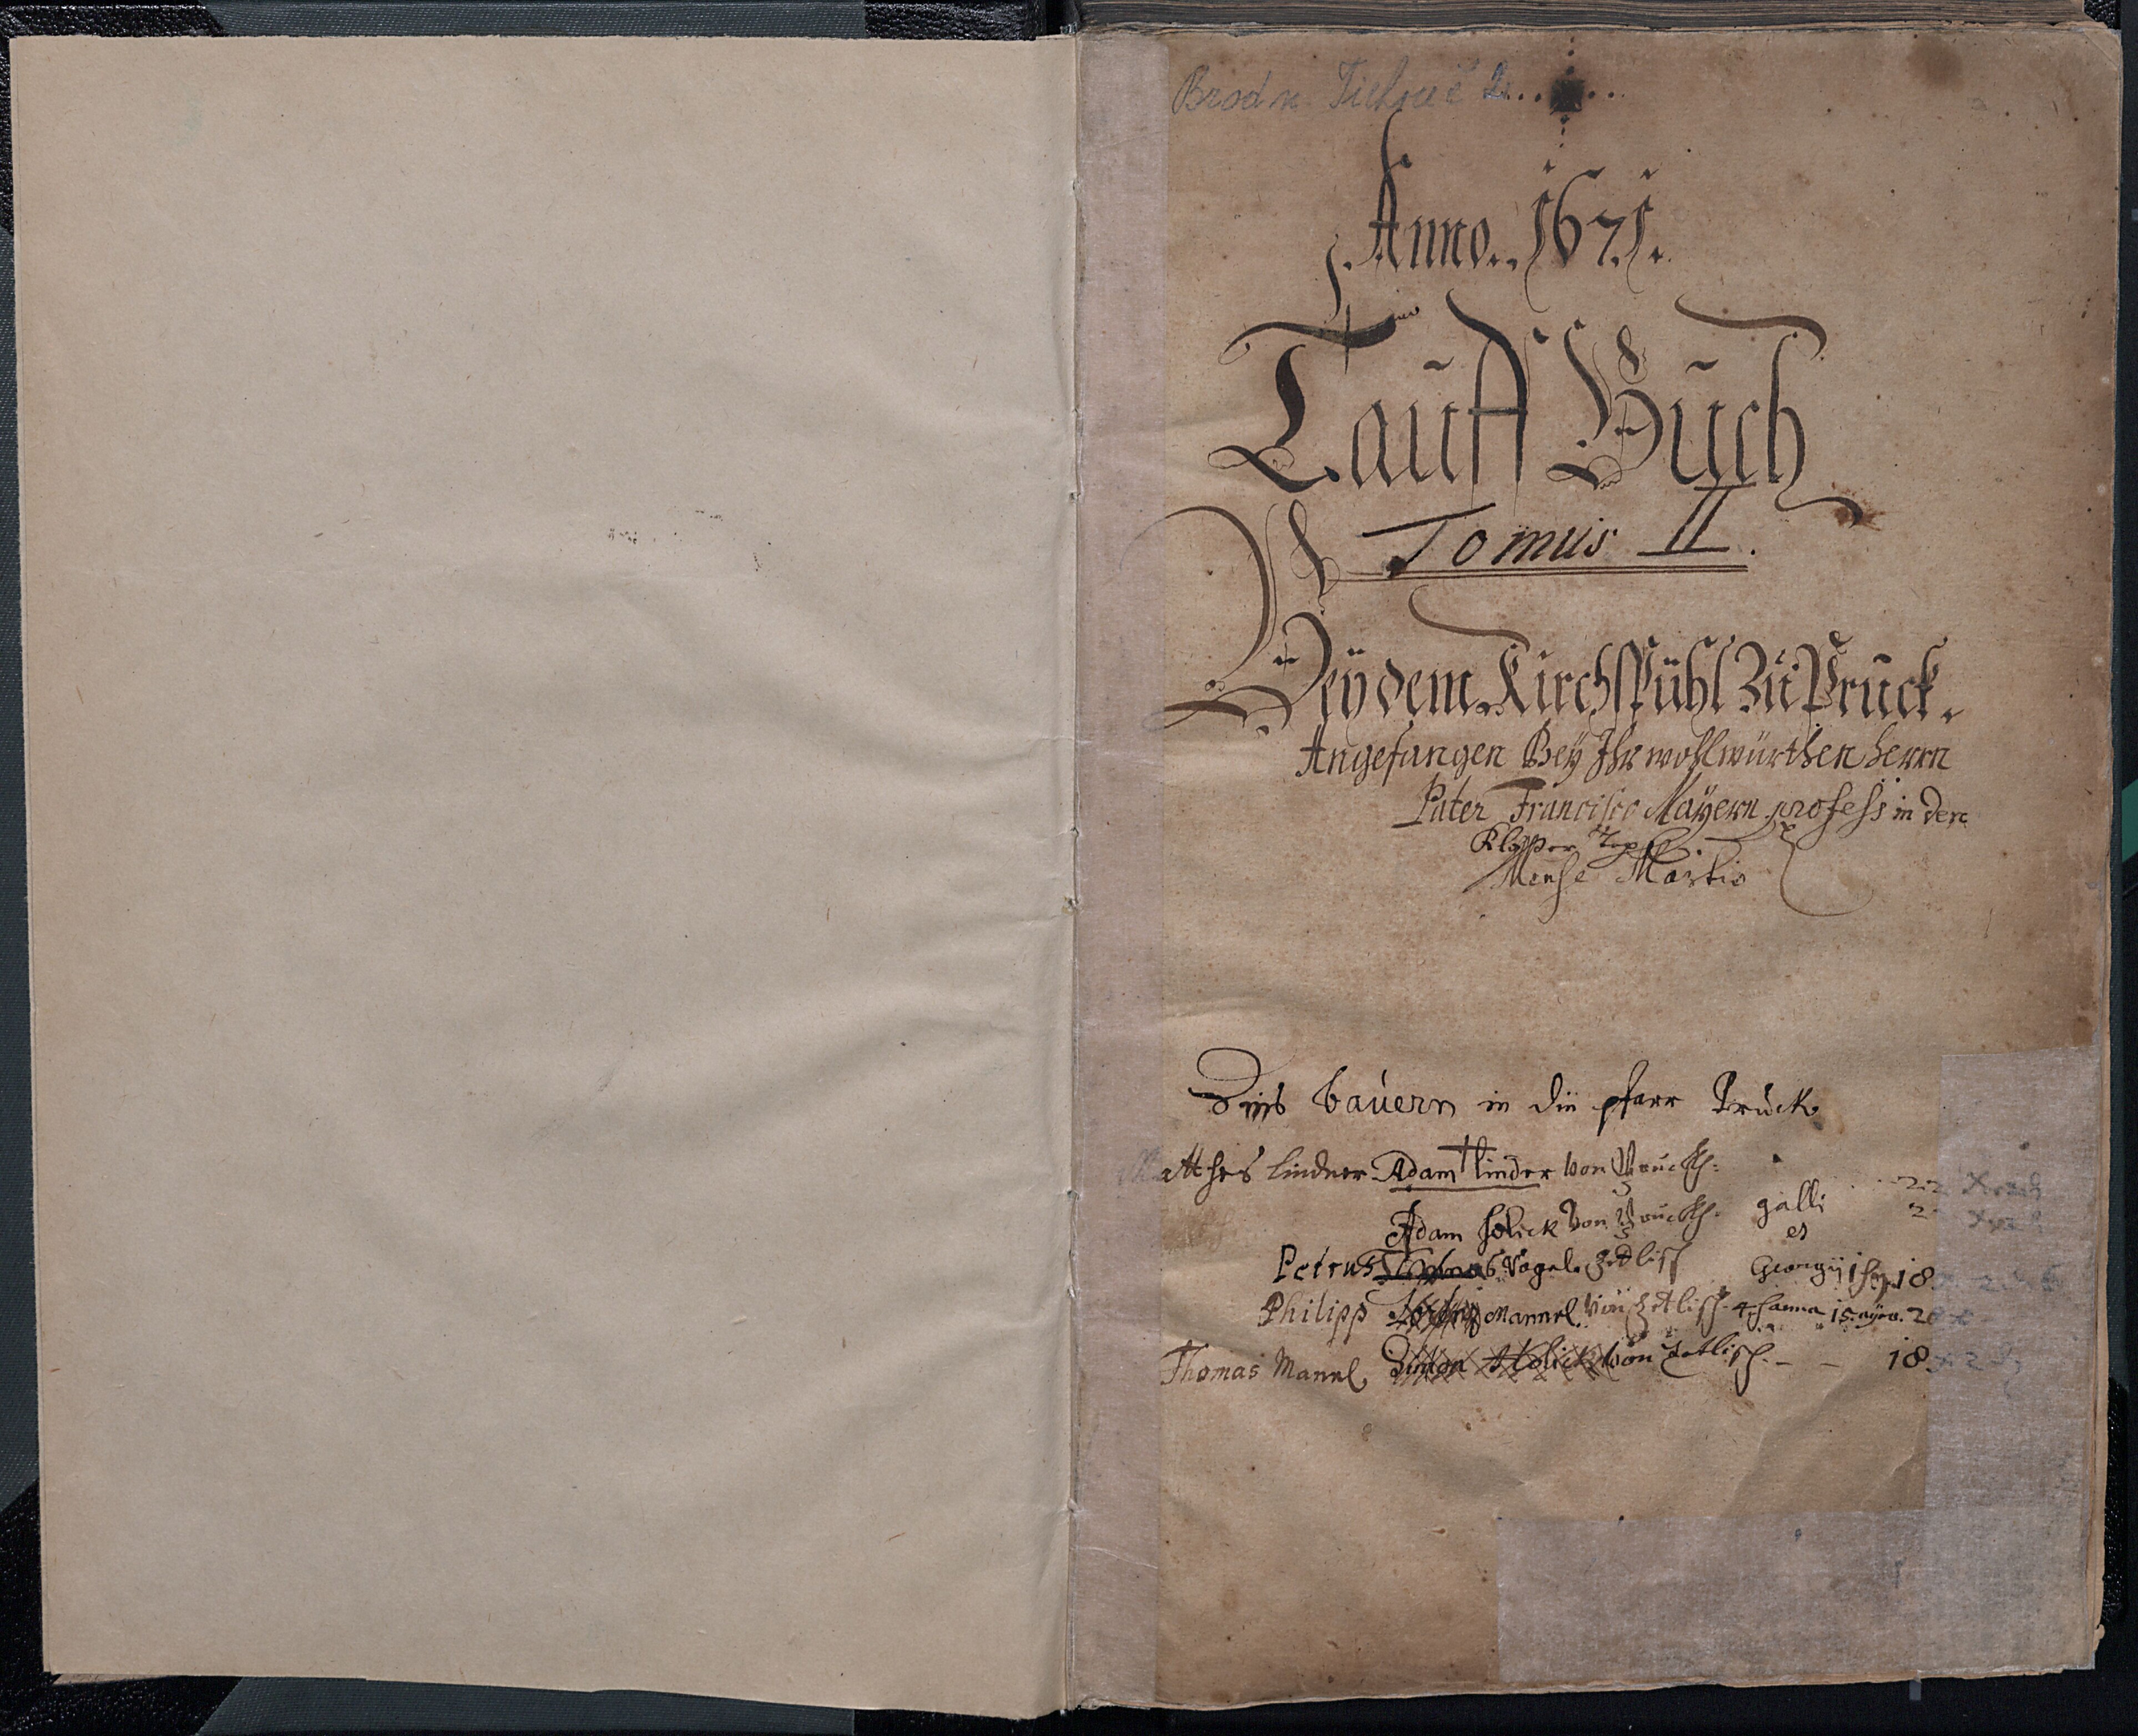 Brod n. Tichou 2
Anno. 1671.
Tauff Buch
Tomus II.
Bey dem Kirchspühl Zu Pruck.
Angefangen Bey Ihr wohlwürthen herrn
Pater Francisco Mayern profess in den
Closter Tepl
Mense Martio
Zins bauern in die pfarr Pruck
Matthes lindner Adam linder von Pruckh:
Adam holick von Pruckh. galli 2
et
Petrus Vogel. Zetlisch Georgii 18.
Philipp Mannel. von Zetlisch. 4 hanna 15. 20
Thomas Mannl Simon Holick von Zetlisch. - - 18.